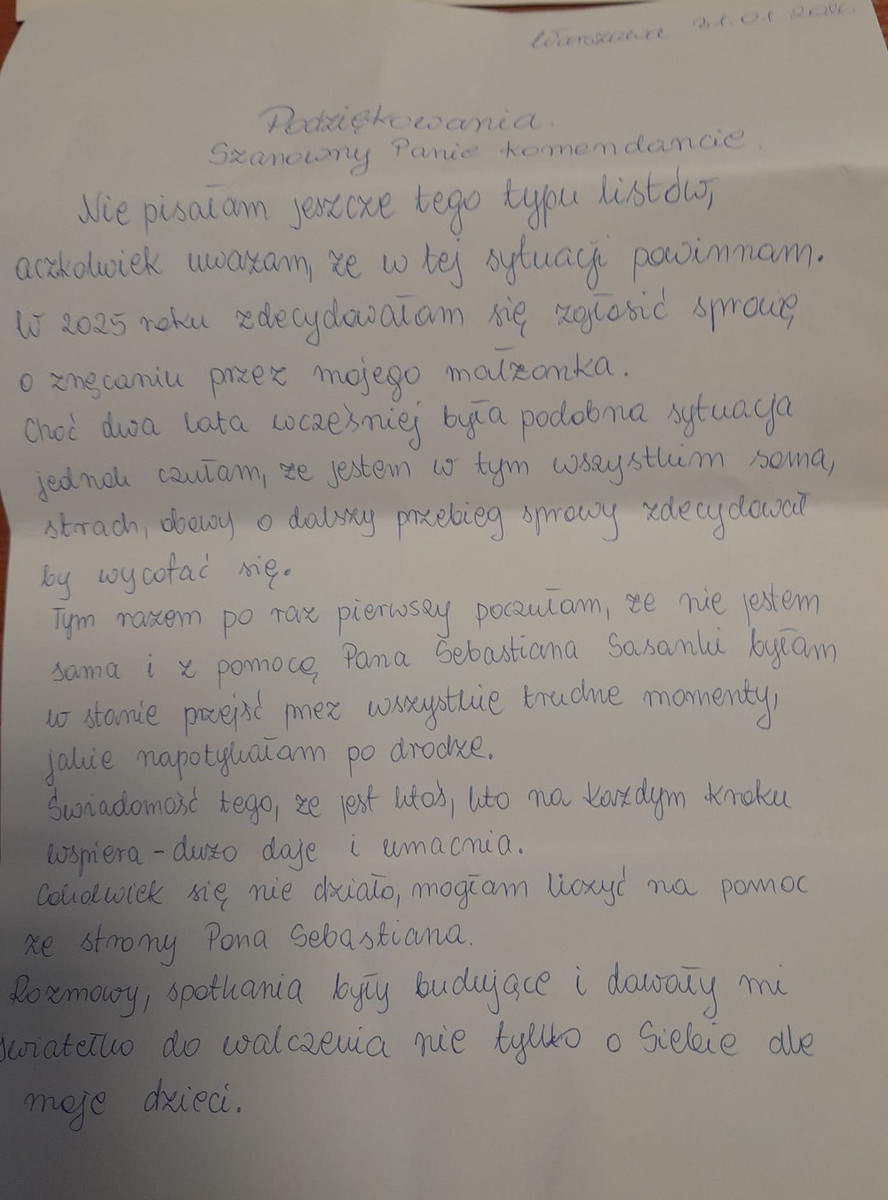 Warszawa 21.01 2026
Podziękowania.
Szanowny Panie komendancie.
Nie pisałam jeszcze tego typu listów,
aczkolwiek uważam, że w tej sytuacji powinnam.
W 2025 roku zdecydowałam się zgłosić sprawę
o znęcaniu przez mojego małżonka.
Choć dwa lata wcześniej była podobna sytuacja
jednak czułam, że jestem w tym wszystkim sama,
strach, obawy o dalszy przebieg sprawy zdecydował
by wycofać się.
Tym razem po raz pierwszy poczułam, że nie jestem
sama i z pomocą Pana Sebastiana Sasanki byłam
w stanie przejść przez wszystkie trudne momenty,
jakie napotykałam po drodze.
Świadomość tego, że jest ktoś, kto na każdym kroku
wspiera - dużo daje i umacnia.
Cokolwiek się nie działo, mogłam liczyć na pomoc
ze strony Pana Sebastiana.
Rozmowy, spotkania były budujące i dawały mi
światełko do walczenia nie tylko o Siebie ale
moje dzieci.